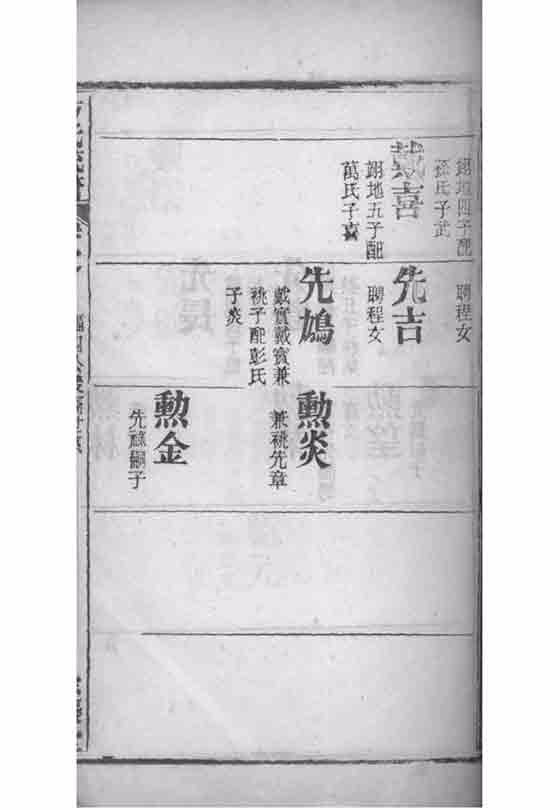 翊地四子配
孫氏子武
喜
翊地五子配
萬氏子喜
聘程女
先吉
聘程女
先鳩
戴實戴賓兼
祧子配彭氏
子炎
勲炎
兼祧先章
勲金
先祿嗣子